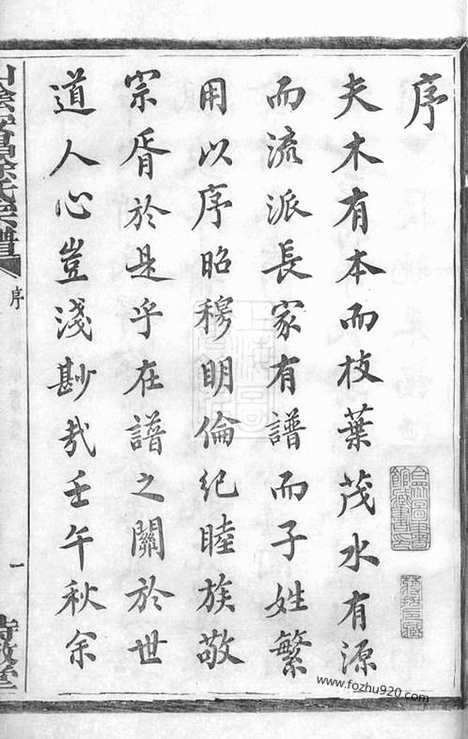 序
夫木有本而枝葉茂水有源
而流派長家有譜而子姓繁
用以序昭穆明倫紀睦族敬
宗胥於是乎在譜之關於世
道人心豈淺尠哉壬午秋余
序
一
www.fozhu920.com